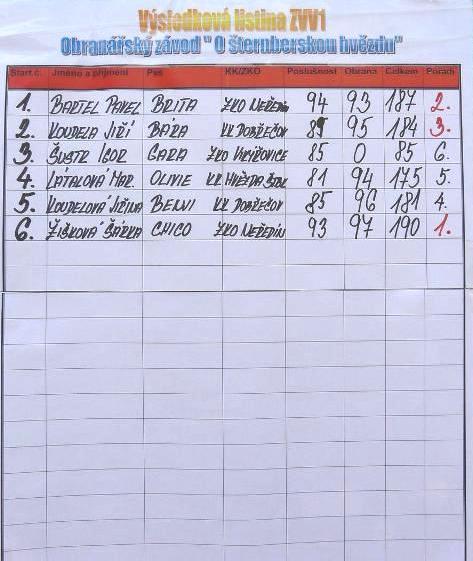 Výsledková listina ZVV1
Obranářský závod " O šternberskou hvězdu"
Start.č. Jméno a příjmení Pes KK/ZKO Poslušnost Obrana Celkem Pořadí
1. BARTEL PAVEL BRITA ZKO NEŘEDÍN 94 93 187 2.
2. KOUDELA JIŘÍ BÁRA KK DOBŘEČOV 89 95 184 3.
3. ŠUSTR IGOR GARA ZKO 85 0 85 6.
4. LÁTALOVÁ MAR. OLIVIE KK HVĚZDA 81 94 175 5.
5. KOUDELOVÁ JIŘINA KK DOBŘEČOV 85 96 181 4.
6. ŽIŠKOVÁ ŠÁRKA CHICO ZKO NEŘEDÍN 93 97 190 1.